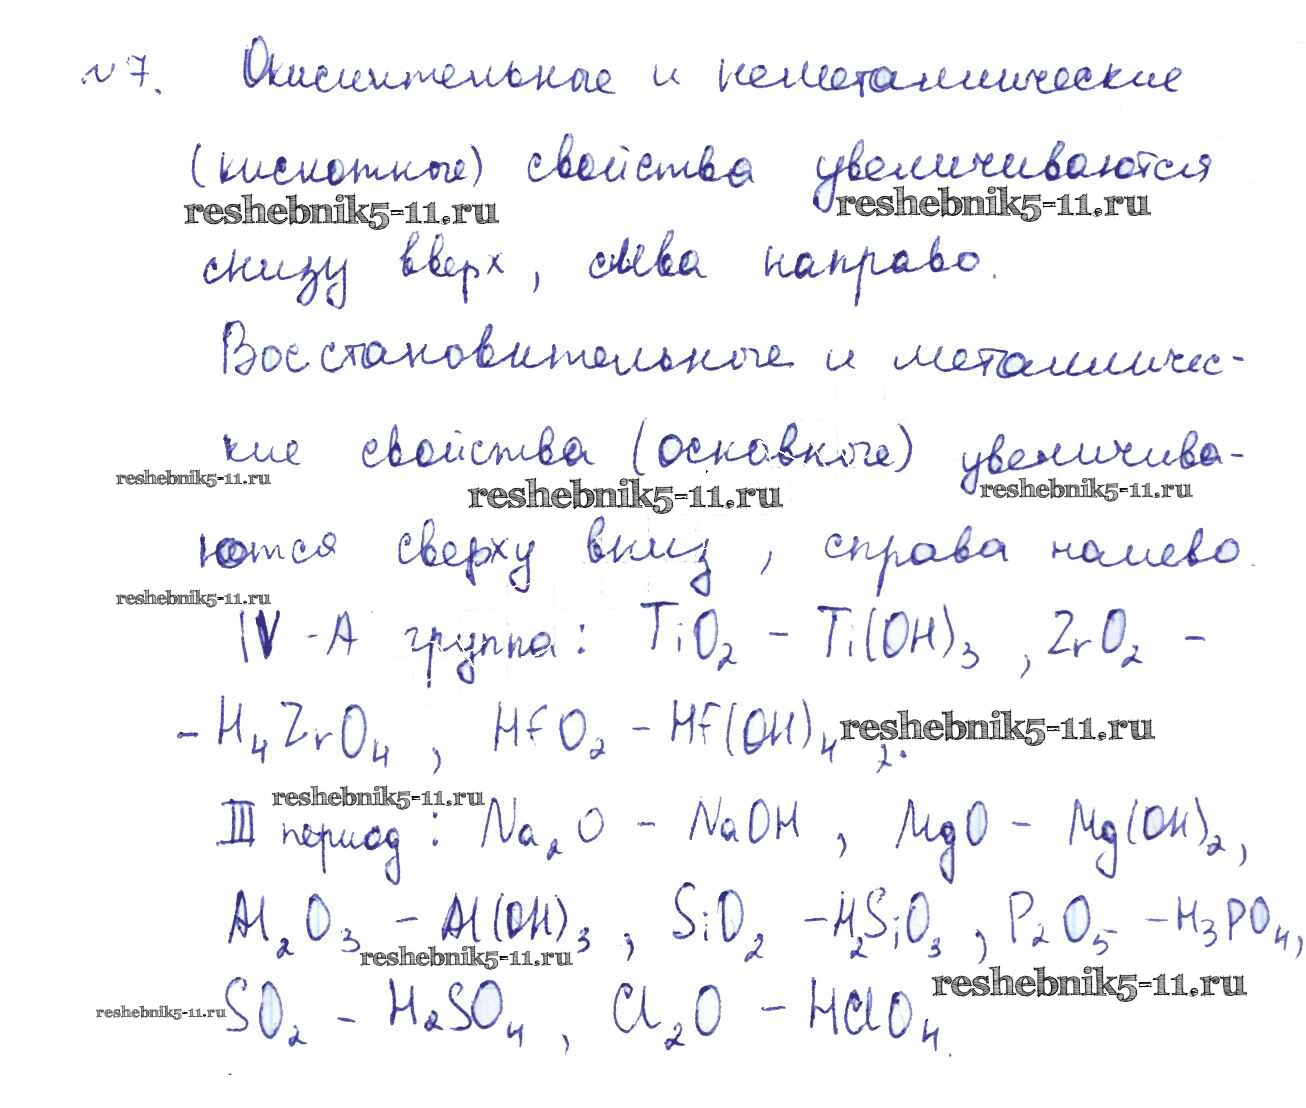 №7. Окислительные и неметаллические
(кислотные) свойства увеличиваются
reshebnik5-11.ru reshebnik5-11.ru
снизу вверх, слева направо.
Восстановительные и металличес-
кие свойства (основные) увеличива-
reshebnik5-11.ru reshebnik5-11.ru reshebnik5-11.ru
ются сверху вниз, справа налево.
reshebnik5-11.ru
IV-A группа: TiO₂ - Ti(OH)₃, ZrO₂ -
- H₄ZrO₄, HfO₂ - Hf(OH)₄ reshebnik5-11.ru
reshebnik5-11.ru
III период: Na₂O - NaOH, MgO - Mg(OH)₂,
Al₂O₃ - Al(OH)₃, SiO₂ - H₂SiO₃, P₂O₅ - H₃PO₄,
reshebnik5-11.ru reshebnik5-11.ru
reshebnik5-11.ru
SO₂ - H₂SO₄, Cl₂O - HClO₄.